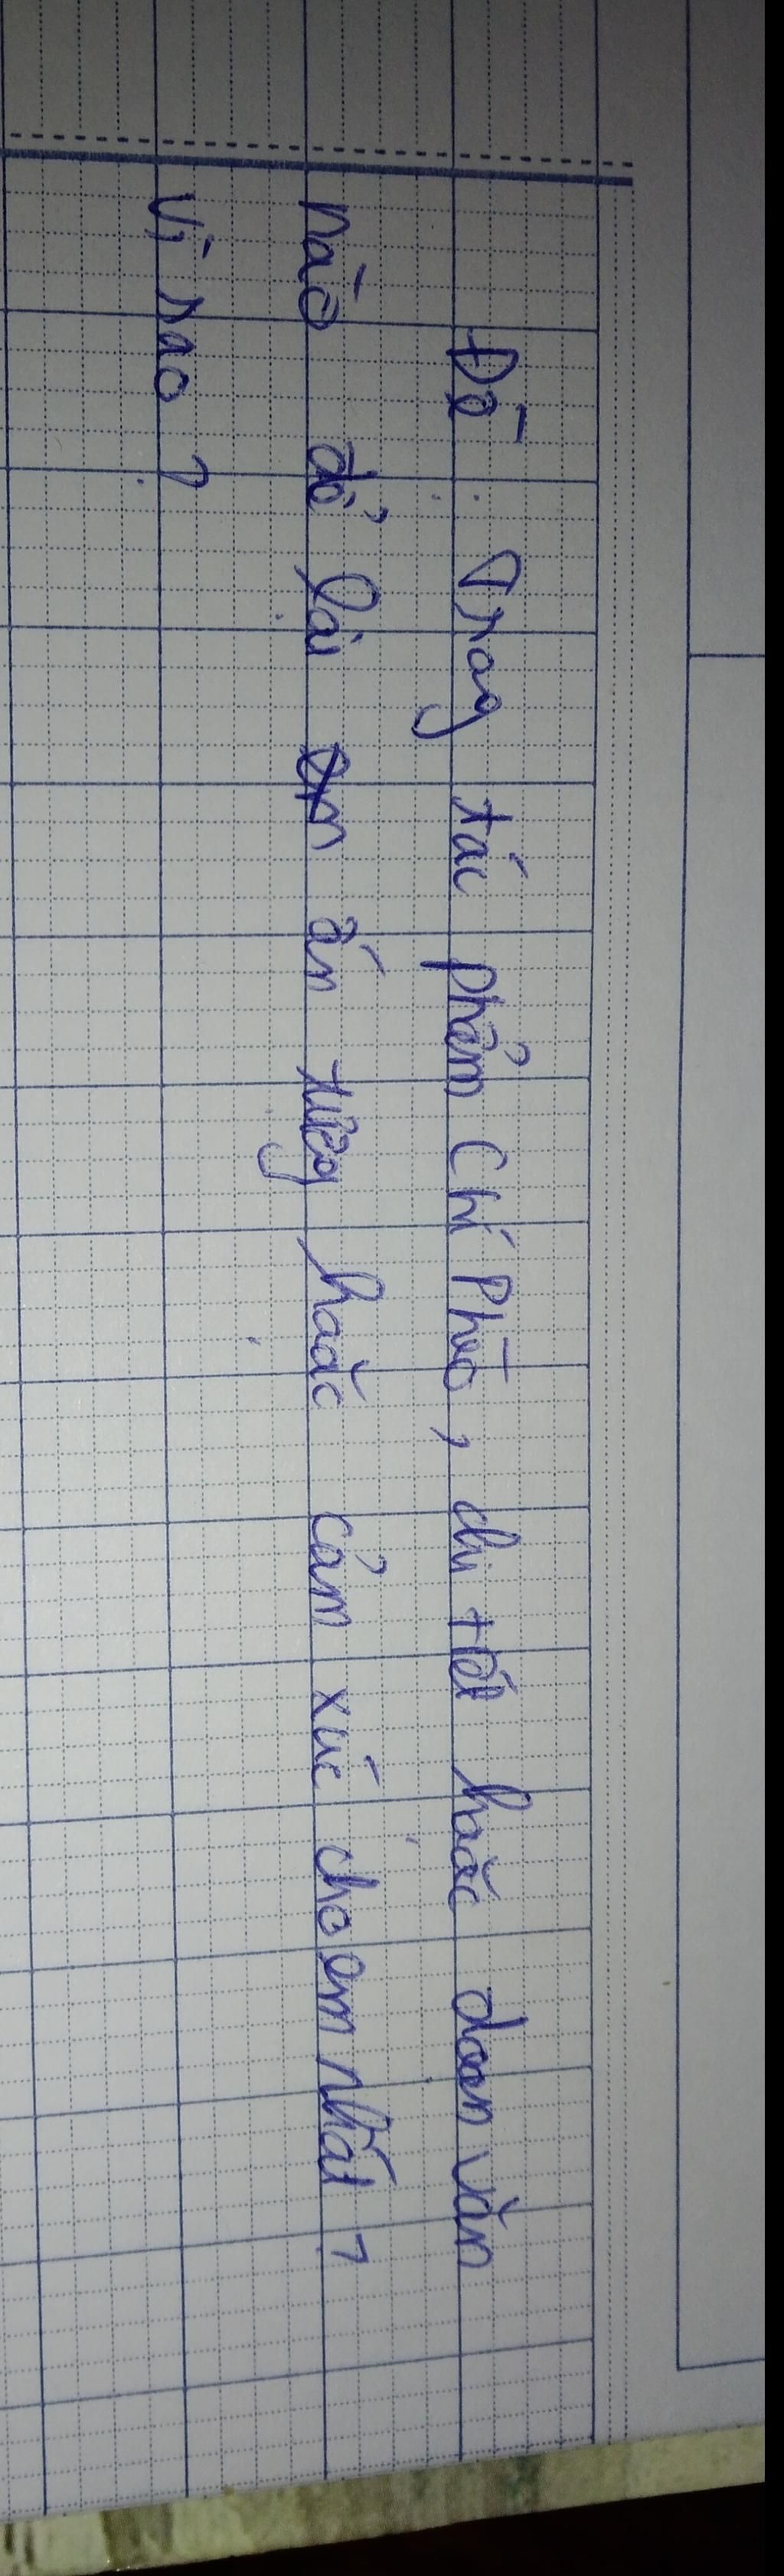 Đề : Trong tác phẩm Chí Phèo, chi tiết hoặc đoạn văn
nào để lại ấn tượng hoặc cảm xúc cho em nhất ?
Vì sao ?